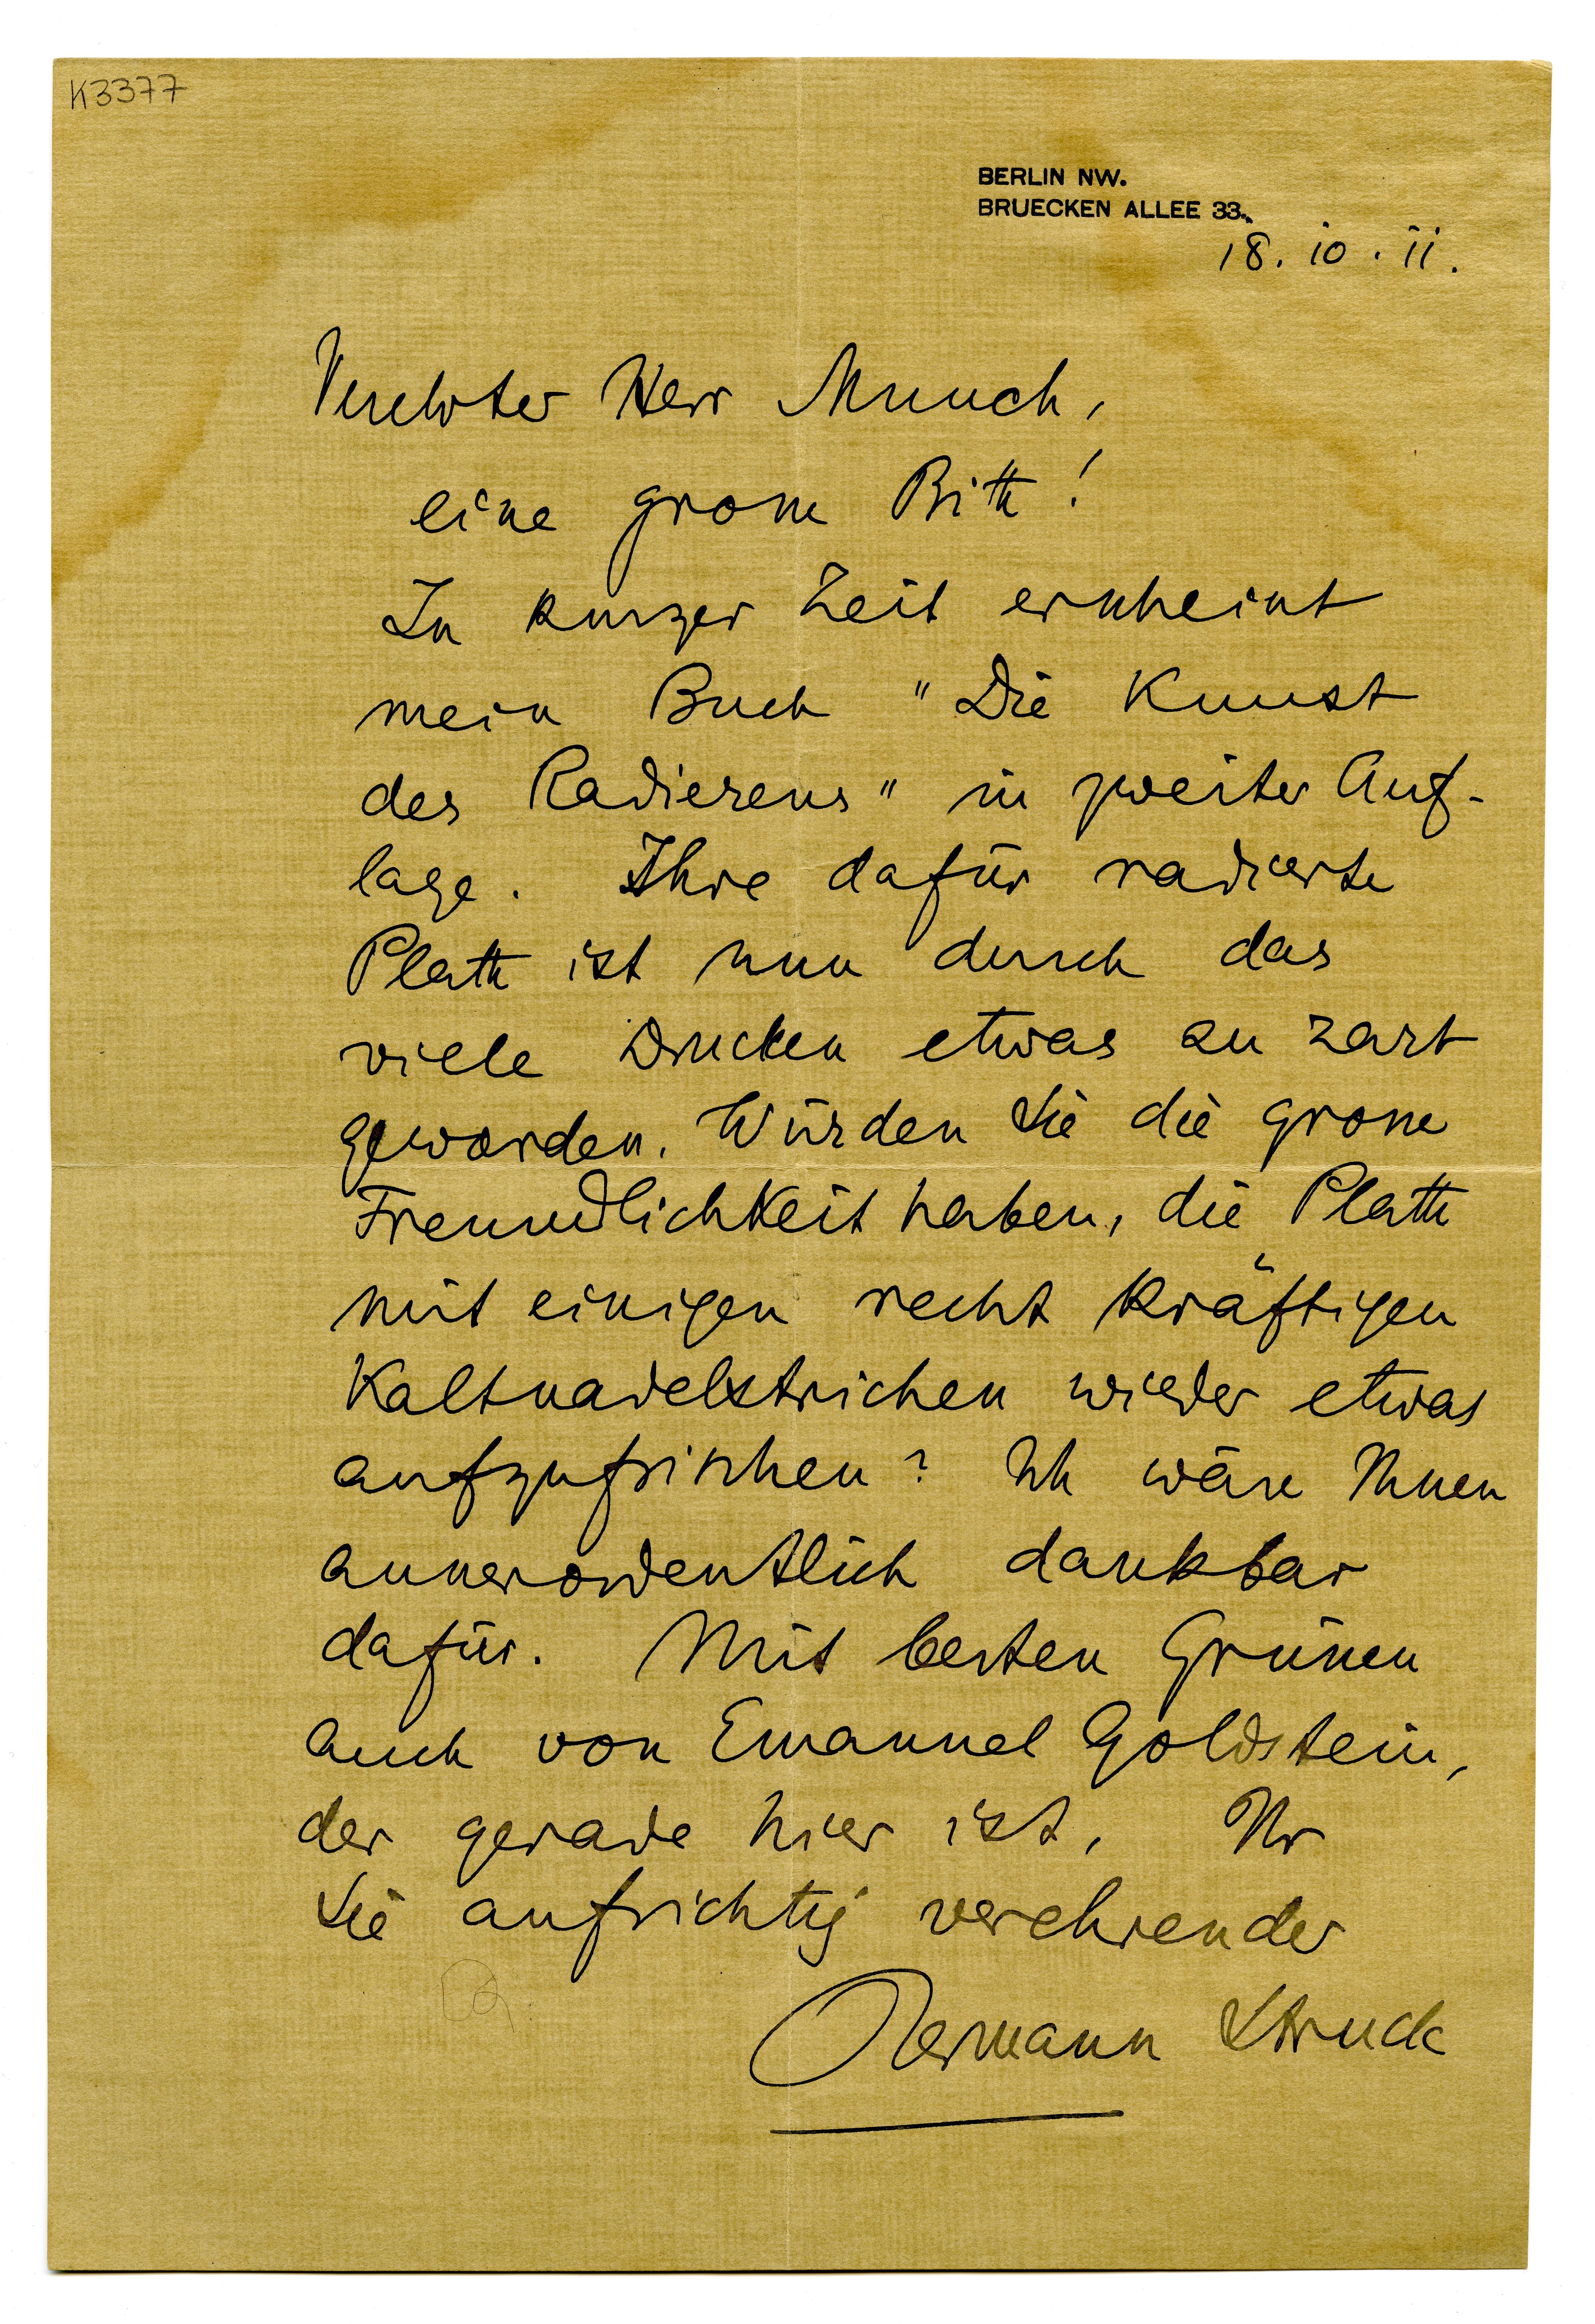 K3377
BERLIN NW.
BRUECKEN ALLEE 33.
18. 10. 11.
Verehrter Herr Munch,
eine grosse Bitte!
In kurzer Zeit erscheint
mein Buch "Die Kunst
des Radierens" in zweiter Auf-
lage. Ihre dafür radierte
Platte ist nun durch das
viele Drucken etwas zu zart
geworden. Würden Sie die grosse
Freundlichkeit haben, die Platte
mit einigen recht kräftigen
Kaltnadelstrichen wieder etwas
aufzufrischen? Ich wäre Ihnen
ausserordentlich dankbar
dafür. Mit besten Grüssen
auch von Emanuel Goldstein,
der gerade hier ist, Ihr
Sie aufrichtig verehrender
Hermann Struck